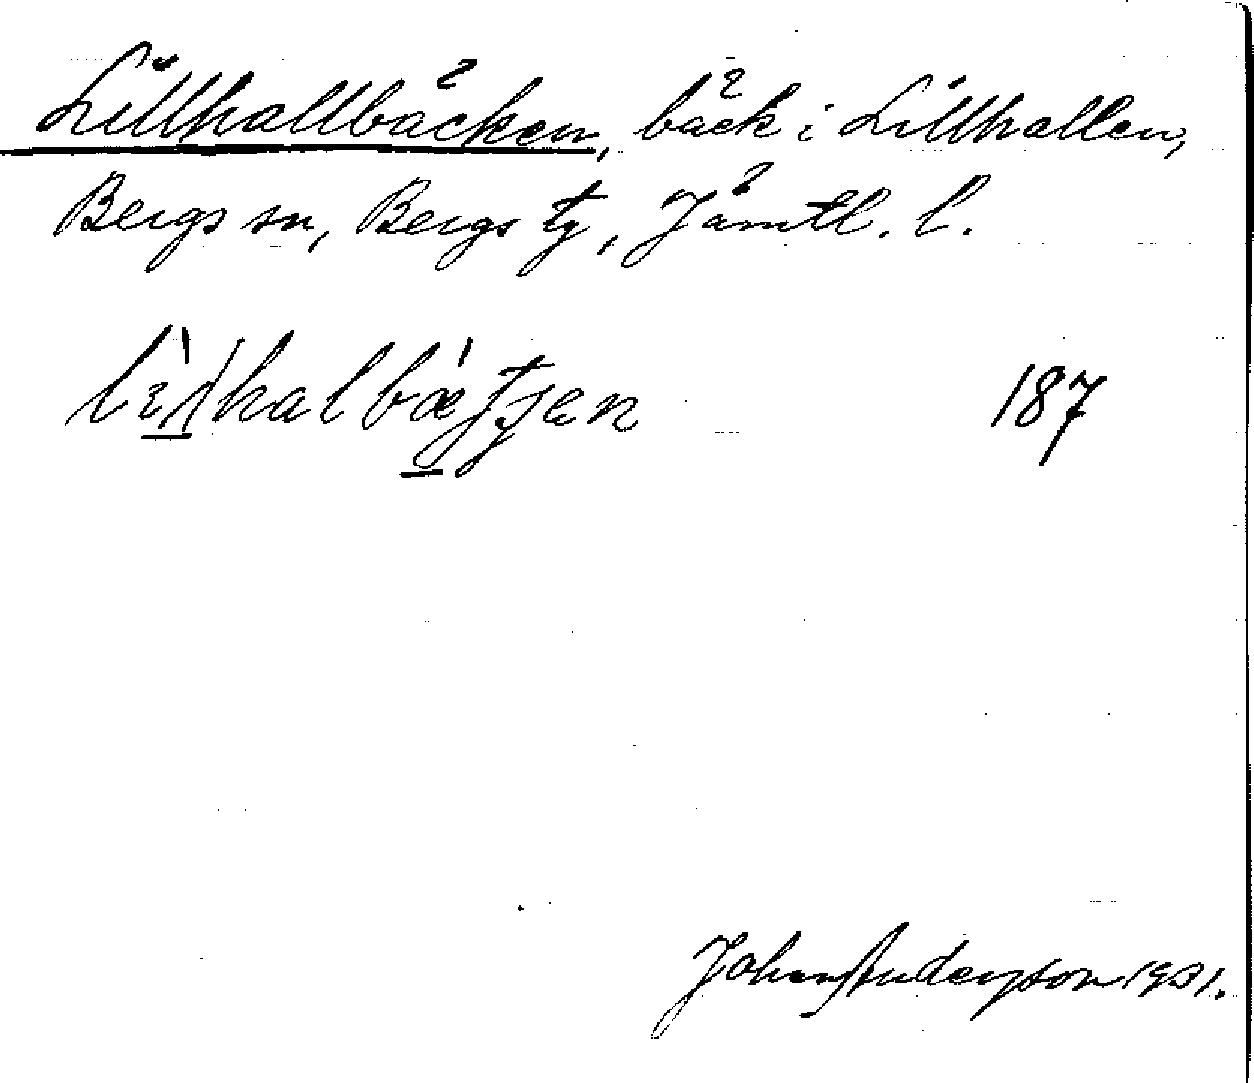 Lillhallbäcken, bäck i Lillhallen,
Bergs sn, Bergs tg, Jämtl. l.
187
Johan Anderson 1931.